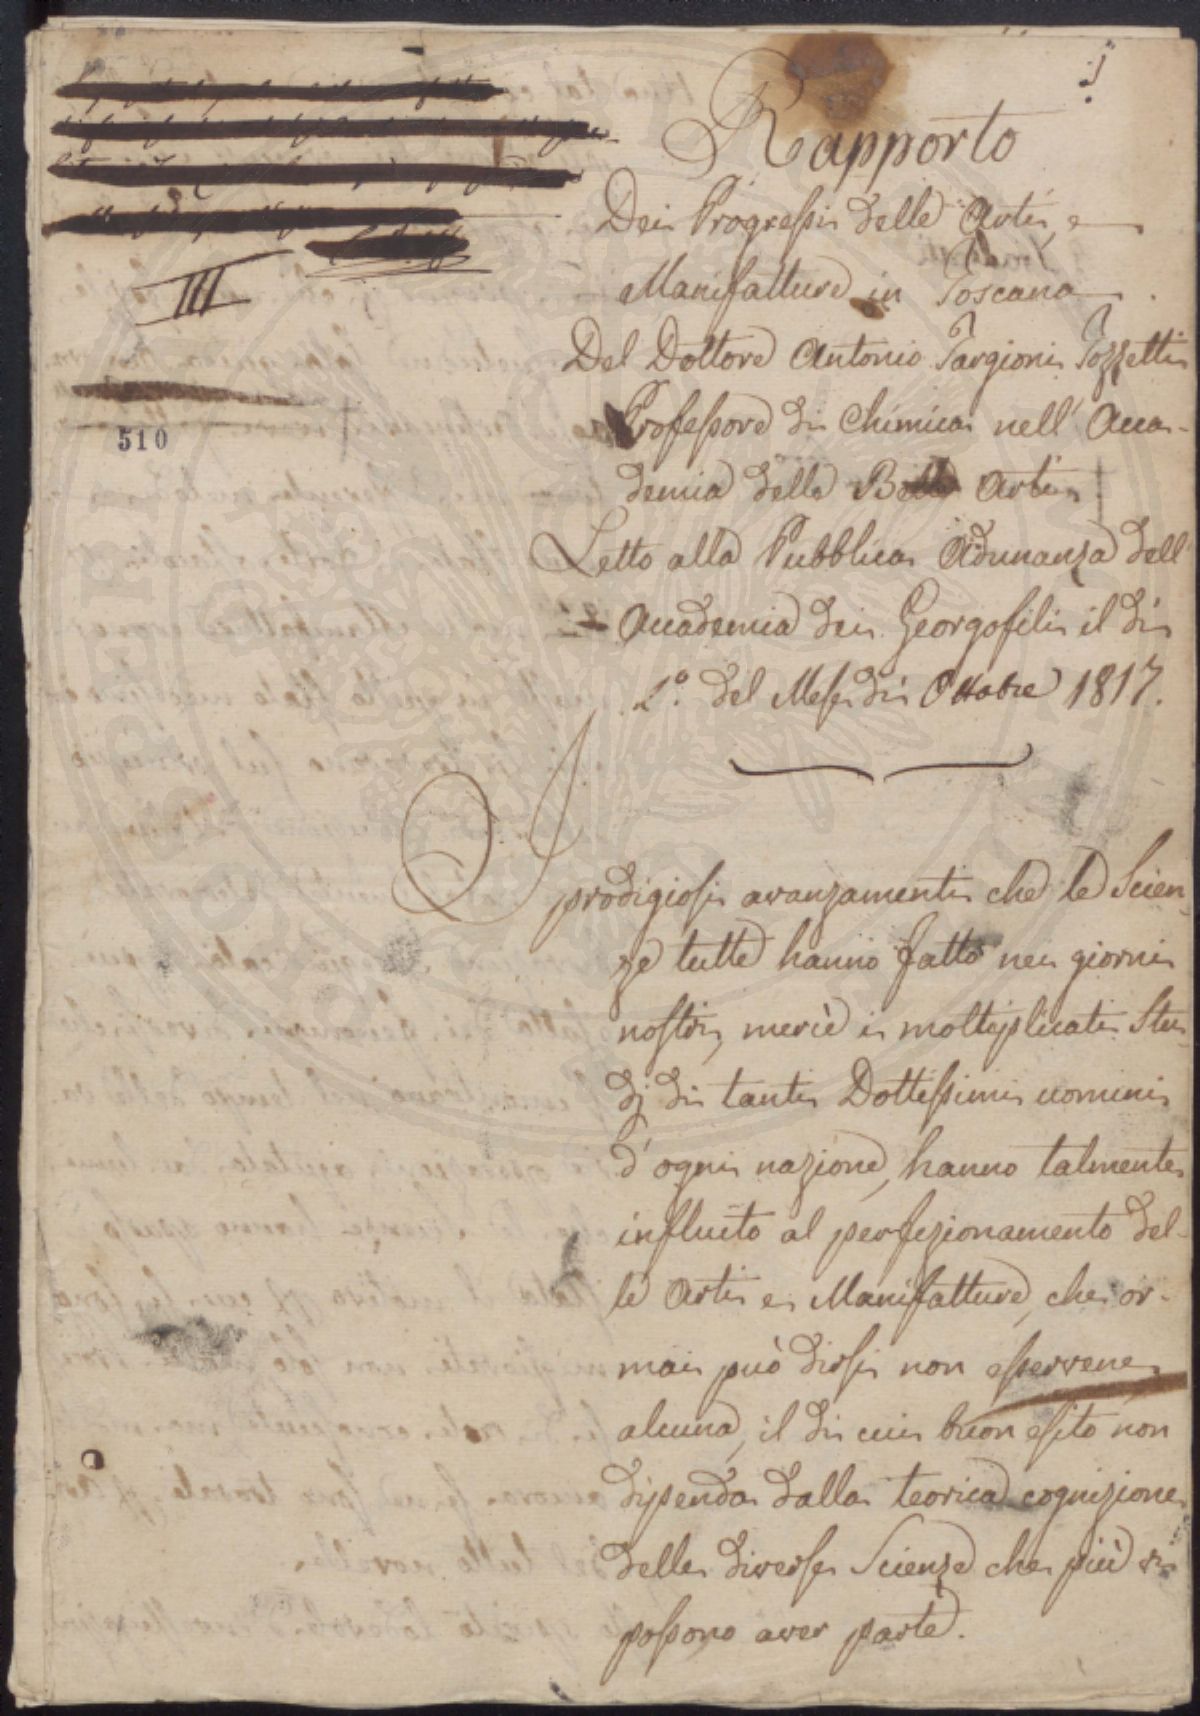 1
Rapporto
Dei Progressi delle Arti, e
Manifatture in Toscana
Del Dottore Antonio Targioni Tozzetti
Professore di Chimica nell' Acca-
demia delle Belle Arti
Letto alla Pubblica Adunanza dell'
Accademia dei Georgofili il dì
2.° del Mese di Ottobre 1817.
III
510
I
prodigiosi avanzamenti che le Scien-
ze tutte hanno fatto nei giorni
nostri, mercè i moltiplicati Stu-
dj di tanti Dottissimi uomini
d'ogni nazione, hanno talmente
influito al perfezionamento del-
le Arti e Manifatture, che or-
mai può dirsi non esservene
alcuna, il di cui buon esito non
dipenda dalla teorica cognizione
delle diverse Scienze che più vi
possono aver parte.